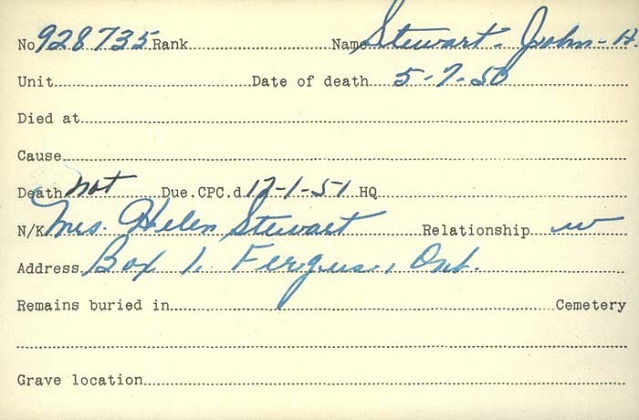 No 928735 Rank Name Stewart. John-H.
Unit Date of death 5-7-50
Died at
Cause
Death not Due.CPC.d 12-1-51 HQ
N/K Mrs. Helen Stewart Relationship w
Address Box 1, Fergus, Ont.
Remains buried in Cemetery
Grave location